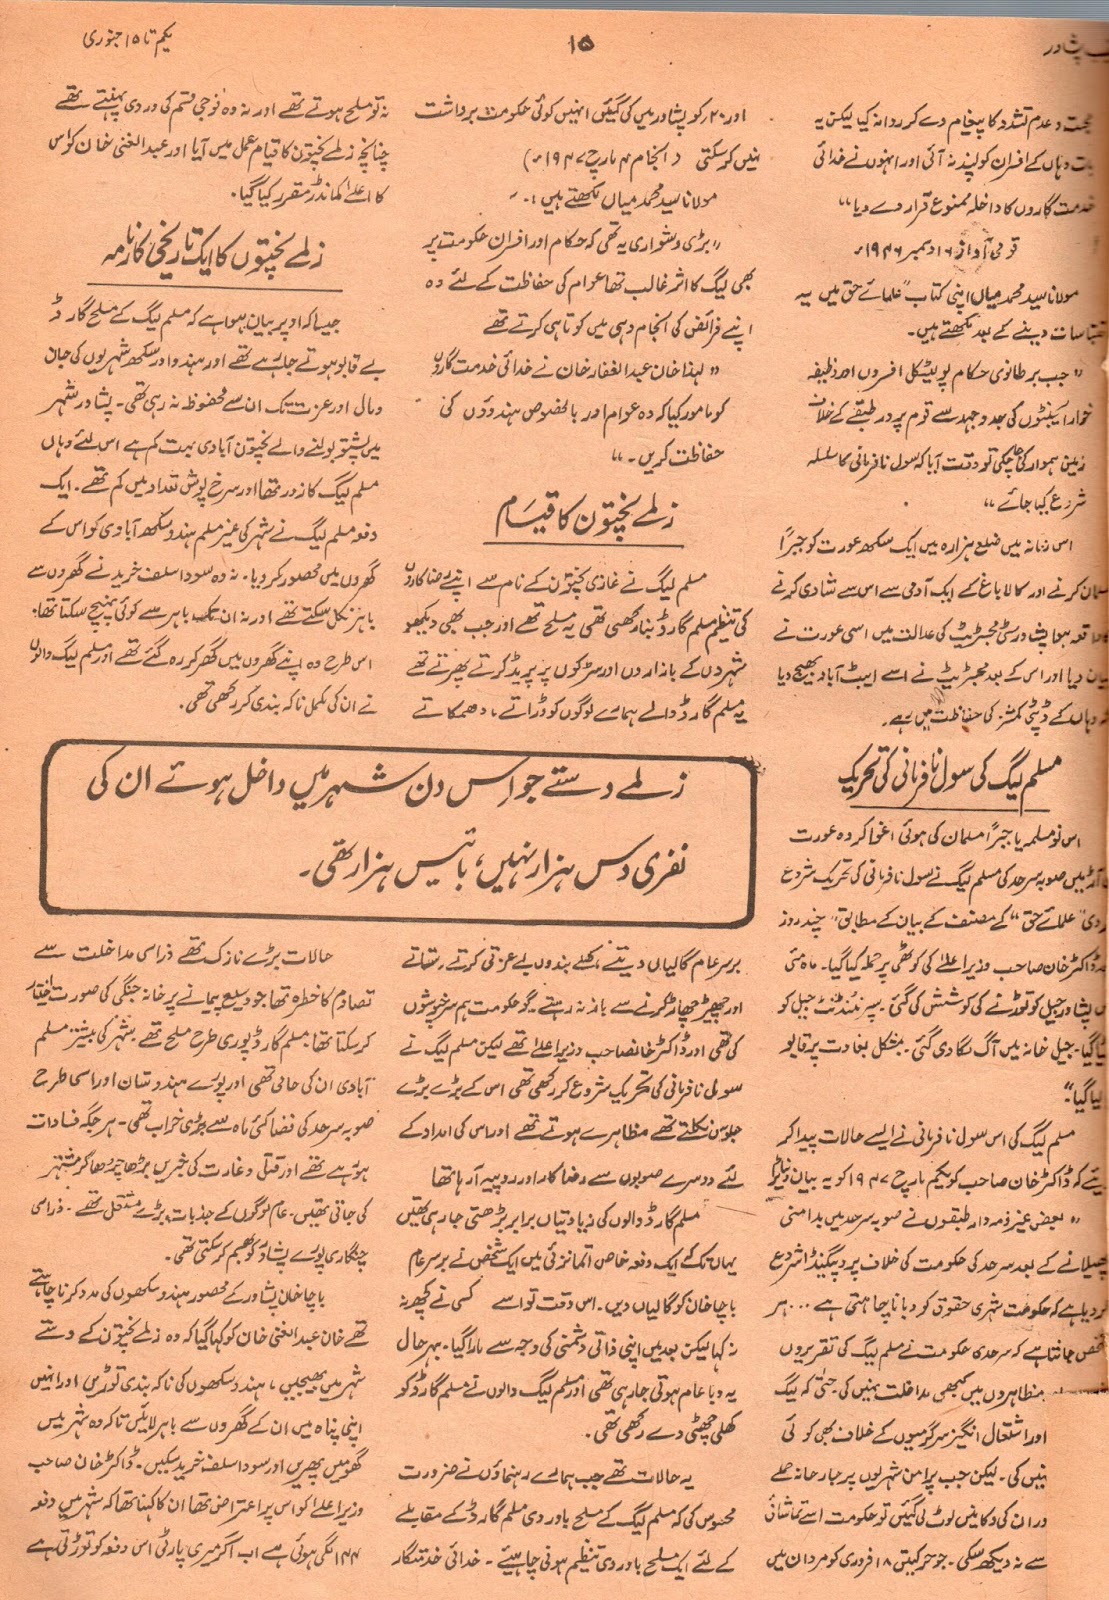 یکم تا ۱۵ جنوری
۱۵
پشاور
محبت و عدم تشدد کا پیغام دے کر روانہ کیا لیکن یہ
بات وہاں کے افسران کو پسند نہ آئی اور انہوں نے خدائی
خدمت گاروں کا داخلہ ممنوع قرار دے دیا،،
قومی آواز ۱۶ دسمبر ۱۹۴۶ء
مولانا سید محمد میاں اپنی کتاب "علمائے حق میں یہ
اقتباسات دینے کے بعد لکھتے ہیں۔
،، جب برطانوی حکام پولیٹیکل افسروں اور وظیفہ
خوار ایجنٹوں کی جدوجہد سے قوم پرور طبقے کے خلاف
زمین ہموار کی جا چکی تو وقت آیا کہ سول نافرمانی کا سلسلہ
شروع کیا جائے ،،
اس زمانہ میں ضلع ہزارہ میں ایک سکھ عورت کو جبراً
مسلمان کرنے اور کالا باغ کے ایک آدمی سے اس سے شادی کرنے
کا واقعہ ہوا پشاور سٹی مجسٹریٹ کی عدالت میں اسی عورت نے
بیان دیا اور اس کے بعد مجسٹریٹ نے اسے ایبٹ آباد بھیج دیا
وہاں کے ڈپٹی کمشنر کی حفاظت میں رہے۔
مسلم لیگ کی سول نافرمانی کی تحریک
اس نو مسلمہ یا جبراً مسلمان کی ہوئی اغوا کردہ عورت
کی آڑ میں صوبہ سرحد کی مسلم لیگ نے سول نافرمانی کی تحریک شروع
کر دی "علمائے حق" کے مصنف کے بیان کے مطابق "چند روز
بعد ڈاکٹر خان صاحب وزیر اعلےٰ کی کوٹھی پر حملہ کیا گیا۔ ماہ مئی
میں پشاور جیل کو توڑنے کی کوشش کی گئی۔ سپرنٹنڈنٹ جیل کو
گیا۔ جیل خانہ میں آگ لگا دی گئی۔ بمشکل بغاوت پر قابو
پایا گیا"۔
مسلم لیگ کی اس سول نافرمانی نے ایسے حالات پیدا کر
دیئے کہ ڈاکٹر خان صاحب کو یکم مارچ ۱۹۴۷ کو یہ بیان دینا پڑا
،، بعض غیر ذمہ دار طبقوں نے صوبہ سرحد میں بدامنی
پھیلانے کے بعد سرحد کی حکومت کی خلاف پروپیگنڈا شروع
کر دیا ہے کہ حکومت شہری حقوق کو دبانا چاہتی ہے ... ہر
شخص جانتا ہے کہ سرحدی حکومت نے مسلم لیگ کی تقریروں
مظاہروں میں کبھی مداخلت نہیں کی حتیٰ کہ لیگ
اور اشتعال انگیز سرگرمیوں کے خلاف بھی کوئی
نہیں کی۔ لیکن جب پرامن شہریوں پر جارحانہ حملے
اور ان کی دکانیں لوٹ لی گئیں تو حکومت اسے تماشائی
سے نہ دیکھ سکی۔ جو حرکتیں ۱۸ فروری کو مردان میں
اور ۲۰، کو پشاور میں کی گئیں انہیں کوئی حکومت برداشت
نہیں کر سکتی (انجام ۴ مارچ ۱۹۴۷ء)
مولانا سید محمد میاں لکھتے ہیں :۔
،، بڑی دشواری یہ تھی کہ حکام اور افسران حکومت پر
بھی لیگ کا اثر غالب تھا عوام کی حفاظت کے لئے وہ
اپنے فرائض کی انجام دہی میں کوتاہی کرتے تھے
،، لہٰذا خان عبدالغفار خان نے خدائی خدمت گاروں
کو مامور کیا کہ وہ عوام اور بالخصوص ہندوؤں کی
حفاظت کریں۔ ،،
زلمے پختون کا قیام
مسلم لیگ نے غازی پختون کے نام سے اپنے رضا کاروں
کی تنظیم مسلم گارڈ بنا رکھی تھی یہ مسلح تھے اور جب بھی دیکھو
شہروں کے بازاروں اور سڑکوں پر پریڈ کرتے پھرتے تھے
یہ مسلم گارڈ والے ہمارے لوگوں کو ڈراتے، دھمکاتے
نہ تو مسلح ہوتے تھے اور نہ وہ فوجی قسم کی وردی پہنتے تھے
چنانچہ زلمے پختون کا قیام عمل میں آیا اور عبدالغنی خان کو اس
کا اعلےٰ کمانڈر مقرر کیا گیا۔
زلمے پختون کا ایک تاریخی کارنامہ
جیسا کہ اوپر بیان ہوا ہے کہ مسلم لیگ کے مسلح گارڈ
بے قابو ہوتے جا رہے تھے اور ہندو اور سکھ شہریوں کی جان
و مال اور عزت تک ان سے محفوظ نہ رہی تھی۔ پشاور شہر
میں پشتو بولنے والے پختون آبادی بہت کم ہے اس لئے وہاں
مسلم لیگ کا زور تھا اور سرخ پوش تعداد میں کم تھے۔ ایک
دفعہ مسلم لیگ نے شہر کی غیر مسلم ہندو سکھ آبادی کو اس کے
گھروں میں محصور کر دیا۔ نہ وہ سودا سلف خریدنے گھروں سے
باہر نکل سکتے تھے اور نہ ان تک باہر سے کوئی پہنچ سکتا تھا۔
اس طرح وہ اپنے گھروں میں گھر کر رہ گئے تھے اور مسلم لیگ والوں
نے ان کی مکمل ناکہ بندی کر رکھی تھی۔
زلمے دستے جو اس دن شہر میں داخل ہوئے ان کی
نفری دس ہزار نہیں، بائیس ہزار تھی۔
برسر عام گالیاں دیتے، کھلے بندوں بے عزتی کرتے، ستاتے
اور چھیڑ چھاڑ کرنے سے باز نہ رہتے گو حکومت ہم سرخپوشوں
کی تھی اور ڈاکٹر خانصاحب وزیر اعلےٰ تھے لیکن مسلم لیگ نے
سول نافرمانی کی تحریک شروع کر رکھی تھی اس کے بڑے بڑے
جلوس نکلتے تھے مظاہرے ہوتے تھے اور اس کی امداد کے
لئے دوسرے صوبوں سے رضا کار اور روپیہ آ رہا تھا
مسلم گارڈ والوں کی زیادتیاں برابر بڑھتی جا رہی تھیں
یہاں تک کے ایک دفعہ خاص اتمانزئی میں ایک شخص نے برسر عام
باچا خان کو گالیاں دیں۔ اس وقت تو اسے کسی نے کچھ نہ
نہ کہا لیکن بعد میں اپنی ذاتی دشمنی کی وجہ سے مارا گیا۔ بہرحال
یہ وبا عام ہوتی جا رہی تھی اور مسلم لیگ والوں نے مسلم گارڈ کو
کھلی چھٹی دے رکھی تھی۔
یہ حالات تھے جب ہمارے رہنماؤں نے ضرورت
محسوس کی کہ مسلم لیگ کے مسلح باوردی مسلم گارڈ کے مقابلے
کے لئے ایک مسلح باوردی تنظیم ہونی چاہیئے۔ خدائی خدمتگار
حالات بڑے نازک تھے ذرا سی مداخلت سے
تصادم کا خطرہ تھا جو وسیع پیمانے پر خانہ جنگی کی صورت اختیار
کر سکتا تھا۔ مسلم گارڈ پوری طرح مسلح تھے۔ شہر کی بیشتر مسلم
آبادی ان کی حامی تھی اور پورے ہندوستان اور اسی طرح
صوبہ سرحد کی فضا کئی ماہ سے بڑی خراب تھی۔ ہر جگہ فسادات
ہو رہے تھے اور قتل و غارت کی خبریں بڑھا چڑھا کر مشتہر
کی جاتی تھیں۔ عام لوگوں کے جذبات بڑے مشتعل تھے۔ ذرا سی
چنگاری پورے پشاور کو بھسم کر سکتی تھی۔
باچا خان پشاور کے محصور ہندو سکھوں کی مدد کرنا چاہتے
تھے خان عبدالغنی خان کو کہا گیا کہ وہ زلمے پختون کے دستے
شہر میں بھیجیں، ہندو سکھوں کی ناکہ بندی توڑیں اور انہیں
اپنی پناہ میں ان کے گھروں سے باہر لائیں تاکہ وہ شہر میں
گھومیں پھریں اور سودا سلف خرید سکیں۔ ڈاکٹر خان صاحب
وزیر اعلےٰ کو اس پر اعتراض تھا ان کا کہنا تھا کہ شہر میں دفعہ
۱۴۴ لگی ہوئی ہے اب اگر میری پارٹی اس دفعہ کو توڑتی ہے